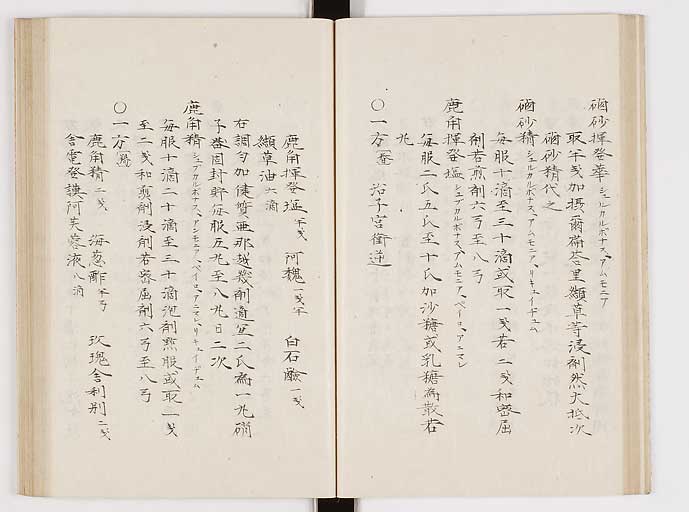 硇砂揮發華 シュルカルボナス、アムモニア
取半戔加摂爾扁荅里纈草等浸剤然大抵次
硇砂精代之
硇砂精 シュルカルボナス、アムモニア、リキュイデュム
毎服十滴至三十滴或取一戔若二戔和密屈
剤若煎剤六弓至八弓
鹿角揮發塩 シュブカルボナス、アムモニア、ペイロ、アニマレ
毎服二氏五氏至十氏加沙糖或乳糖為散若
丸
〇一方 治子宮衝逆
鹿角揮發塩 半戔 阿魏 一戔半 白石鹸 一戔
纈草油 六滴
右調匀加健質亜那越幾剤適宜二氏為一丸硝
子壜固封貯毎服五丸至八丸日二次
鹿角精 シュブカルボナス、アンモニア、ペイロ、アニマレ、リキュイデュム
毎服十滴二十滴至三十滴泡剤煎服或取一戔
至二戔和煎剤浸剤若密屈剤六弓至八弓
〇一方
鹿角精 二戔 海葱酢 半弓 玫瑰舎利別 二戔
舎電發謨阿芙蓉液 八滴